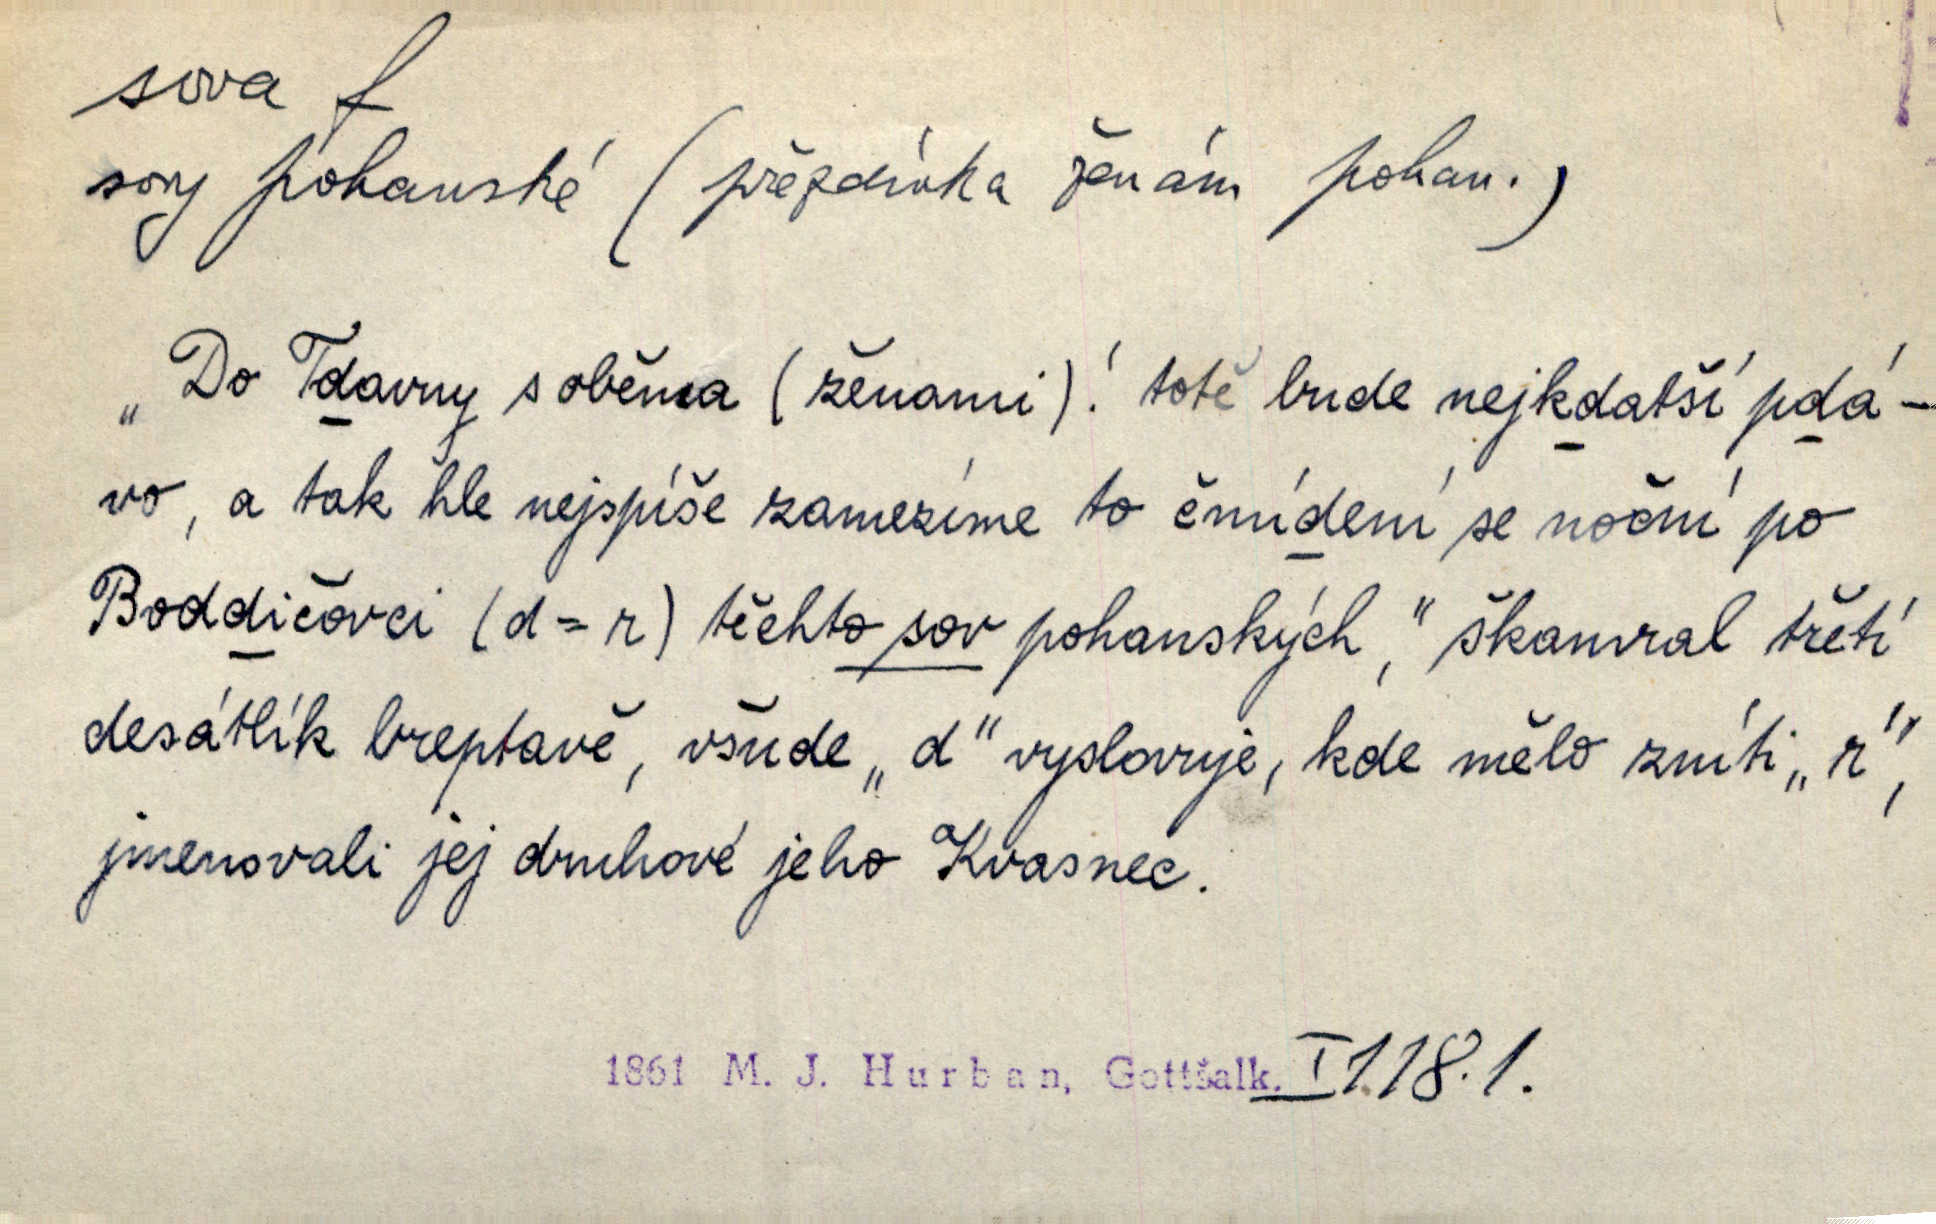 sova f
sovy pohanské (přězdívka ženám pohan.)
„Do Tdavny s oběma (ženami)! totě bude nejkdatší pdá-
vo, a tak hle nejspíše zamezíme to čmídení se noční po
Boddičovci (d=r) těchto sov pohanských," škamral třetí
desátlík breptavě, všude „d" vyslovuje, kde mělo zníti „r",
jmenovali jej druhové jeho Kvasnec.
1861 M. J. Hurban, Gottšalk. I 118.1.